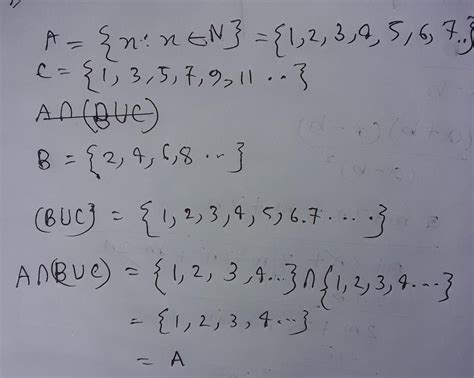 A = {x : x ∈ N} = {1, 2, 3, 4, 5, 6, 7..}
C = {1, 3, 5, 7, 9, 11 ..}
A∩(B∪C)
B = {2, 4, 6, 8 ...}
(B∪C} = {1, 2, 3, 4, 5, 6.7 ....}
A∩(B∪C) = {1, 2, 3, 4...}∩{1, 2, 3, 4...}
= {1, 2, 3, 4...}
= A